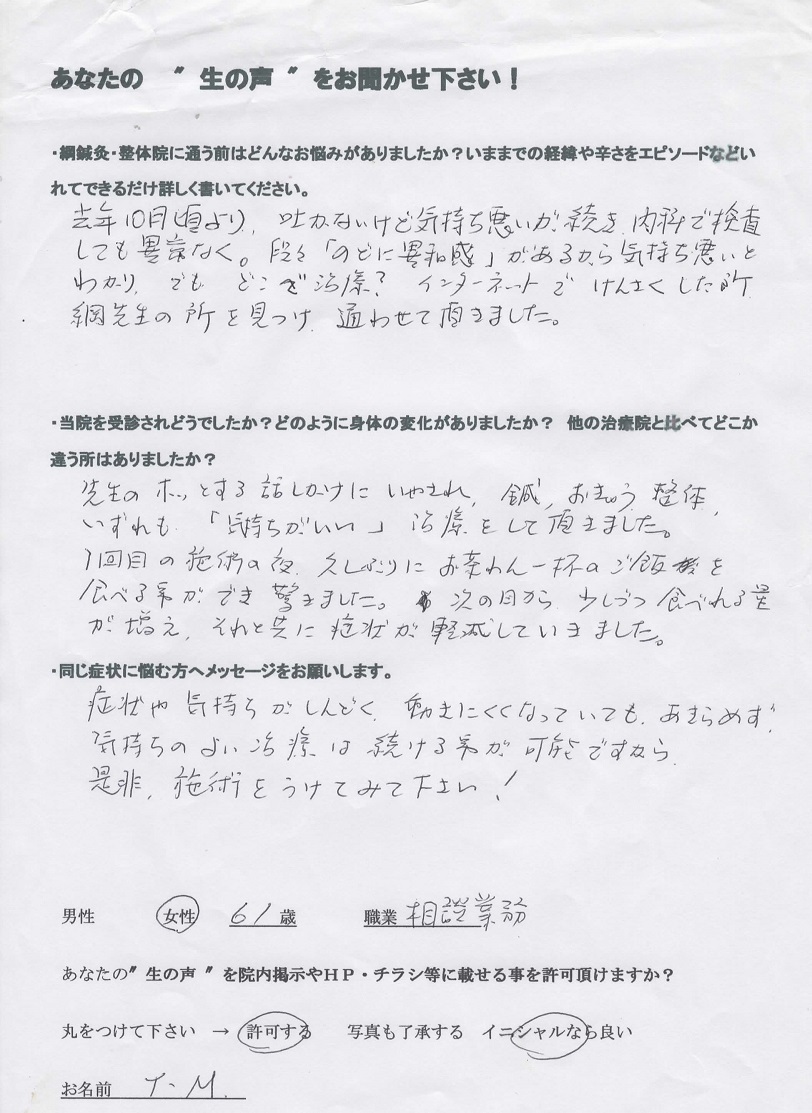 あなたの　〝 生の声 〟をお聞かせ下さい！
・綱鍼灸・整体院に通う前はどんなお悩みがありましたか？いままでの経緯や辛さをエピソードなどい
れてできるだけ詳しく書いてください。
去年10月頃より、吐かないけど気持ち悪いが続き、内科で検査
しても異常なく。段々「のどに異和感」があるから気持ち悪いと
わかり、でも どこで治療？ インターネットで けんさくした所
綱先生の所を見つけ、通わせて頂きました。
・当院を受診されどうでしたか？どのように身体の変化がありましたか？　他の治療院と比べてどこか
違う所はありましたか？
先生のホッとする話しかけに いやされ、鍼、おきゅう、整体、
いずれも「気持ちがいい」治療をして頂きました。
1回目の施術の夜、久しぶりに お茶わん一杯のご飯を
食べる事ができ 驚きました。次の日から 少しづつ 食べれる量
が増え、それと共に 症状が軽減していきました。
・同じ症状に悩む方へメッセージをお願いします。
症状や気持ちがしんどく、動きにくくなっていても、あきらめず、
気持ちのよい治療は続ける事が可能ですから、
是非、施術をうけてみて下さい！
男性　女性　61歳　職業 相談業務
あなたの〝 生の声 〟を院内掲示やＨＰ・チラシ等に載せる事を許可頂けますか？
丸をつけて下さい　→　許可する　写真も了承する　イニシャルなら良い
お名前　T.M.